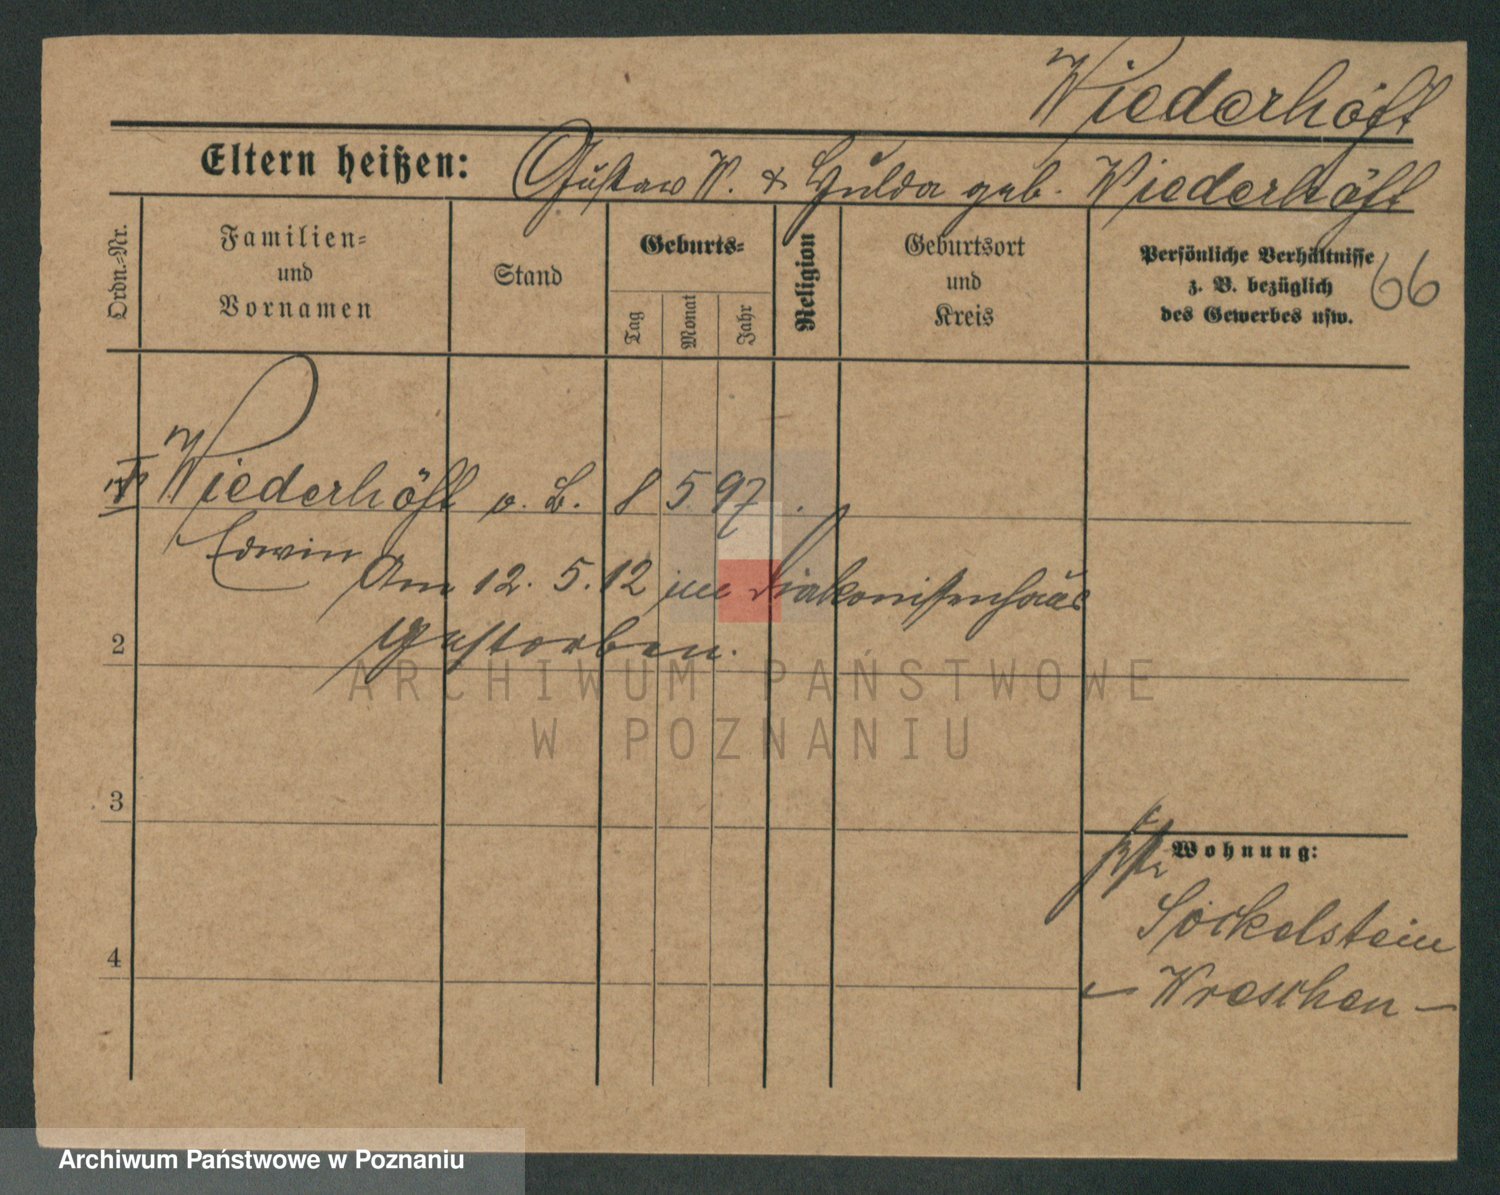 Wiederhöft
Eltern heißen: Gustav W. & Hulda geb. Wiederhöft
Ordn.-Nr.
Familien-
und
Vornamen
Stand
Geburts-
Tag
Monat
Jahr
Religion
Geburtsort
und
Kreis
Persönliche Verhältnisse
z. B. bezüglich
des Gewerbes usw.
66
Wiederhöft o. B. 8 5 97
Edwin
Am 12. 5. 12 im Diakonissenhaus
gestorben.
2
3
4
Wohnung:
Sockelstein
- Wreschen -
ARCHIWUM PAŃSTWOWE
W POZNANIU
Archiwum Państwowe w Poznaniu